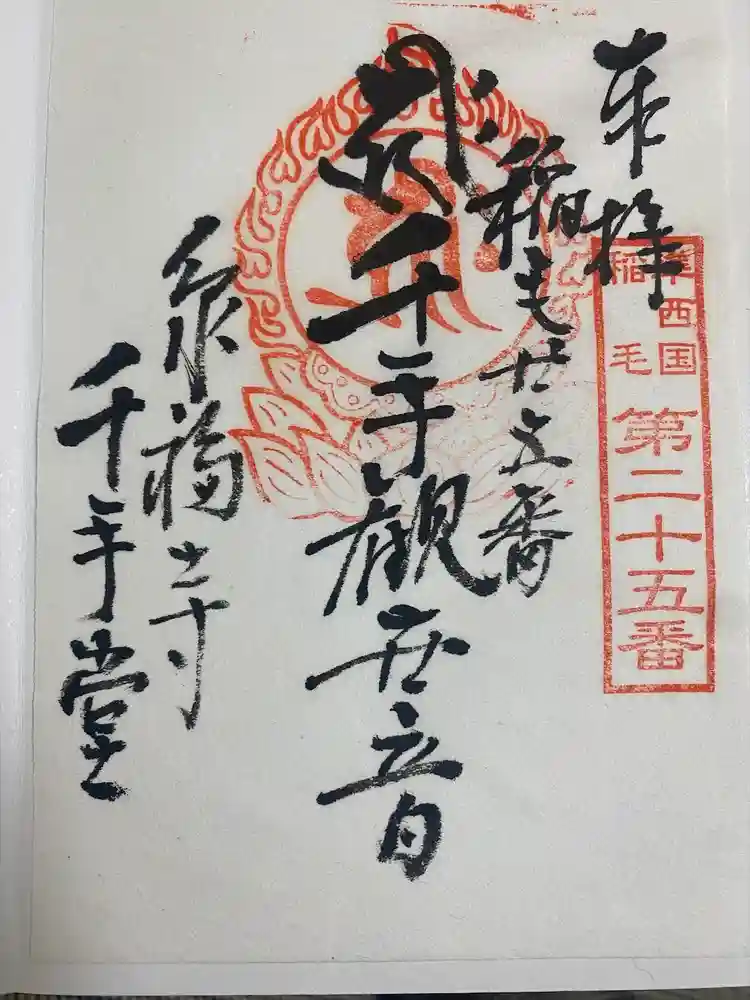 奉拝
準西国
稲毛
第二十五番
稲毛廿五番
千手觀世音
泉福寺
千手堂